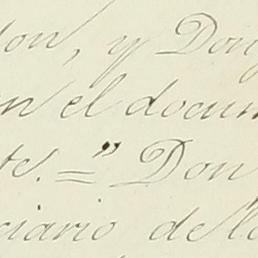 don, y Don
en el docum
te. = " Don
ciario de lo